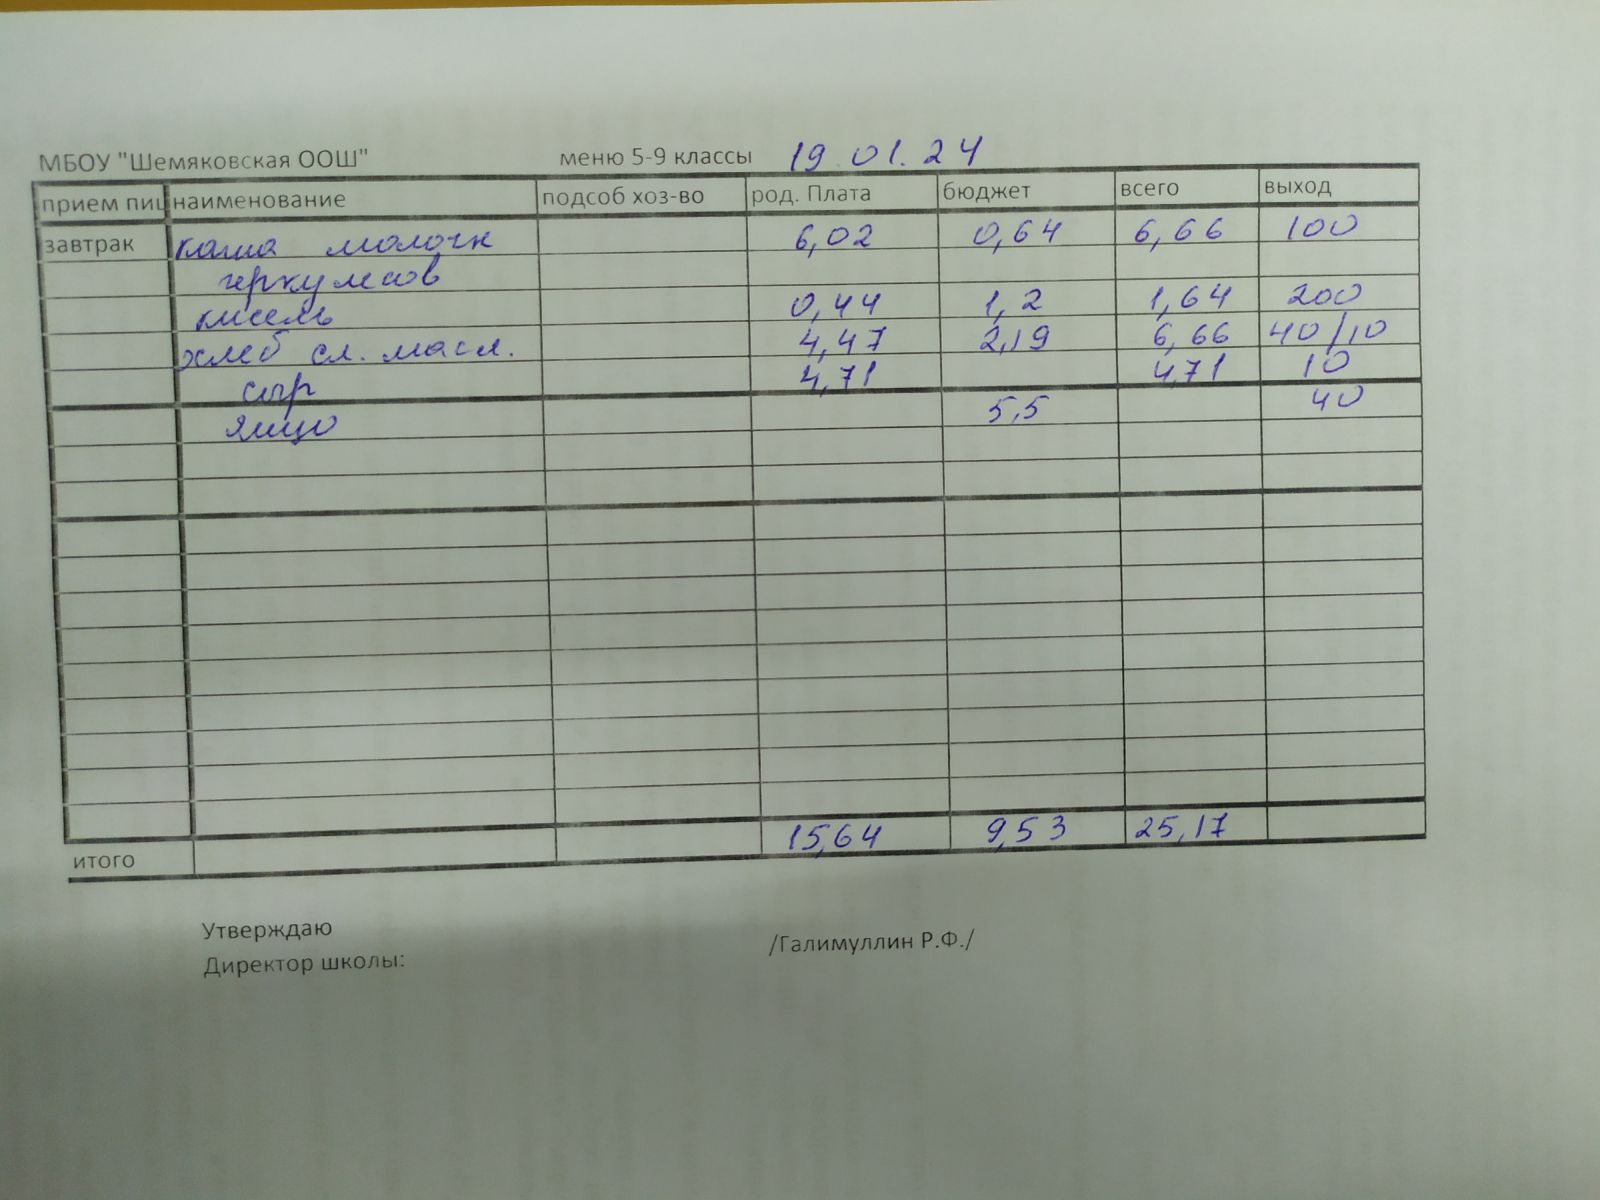 МБОУ "Шемяковская ООШ" меню 5-9 классы 19.01.24
прием пищ наименование подсоб хоз-во род. Плата бюджет всего выход
завтрак каша молочн 6,02 0,64 6,66 100
геркулесов
кисель 0,44 1,2 1,64 200
хлеб сл. масл. 4,47 2,19 6,66 40/10
сыр 4,71 4,71 10
яйцо 5,5 40
итого 15,64 9,53 25,17
Утверждаю
Директор школы: /Галимуллин Р.Ф./